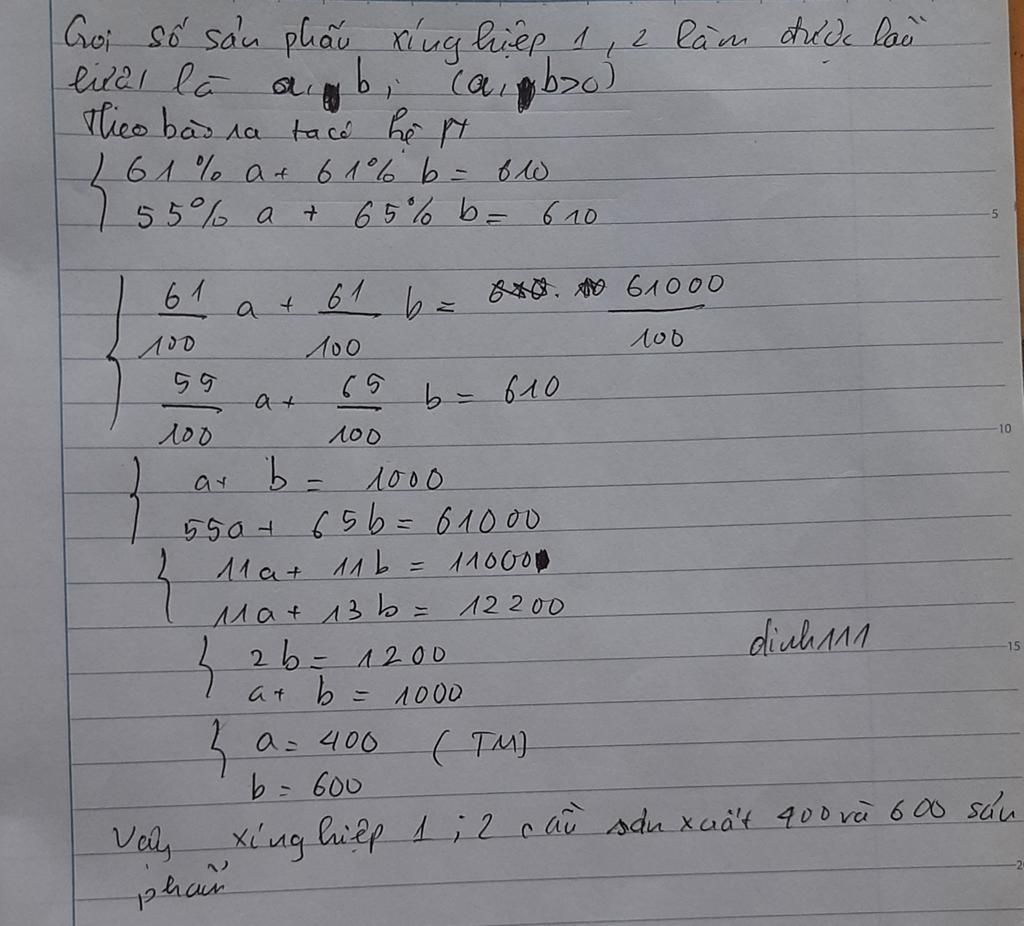 Gọi số sản phẩm xí nghiệp 1, 2 làm được lần
lượt là a, b, (a, b>0)
Theo bào ra ta có hệ pt
{ 61% a + 61% b = 610
55% a + 65% b = 610
{ 61/100 a + 61/100 b = 61000/100
55/100 a + 65/100 b = 610
{ a + b = 1000
55a + 65b = 61000
{ 11a + 11b = 11000
11a + 13b = 12200
{ 2b = 1200
dinh111
a + b = 1000
{ a = 400 (TM)
b = 600
Vậy xí nghiệp 1; 2 cần sản xuất 400 và 600 sản
phẩm